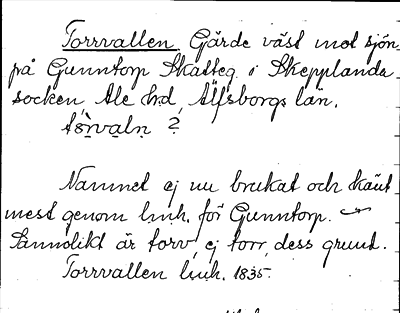 Torrvallen Gärde väst mot sjön
på Gunntorp Skatteg. i Skepplanda
socken, Ale hd, Älfsborgs län.
tòrvaln ?
Namnet ej nu brukat och känt
mest genom linh. för Gunntorp.
Sannolikt är torv, ej torr, dess grund.
Torrvallen linh. 1835.